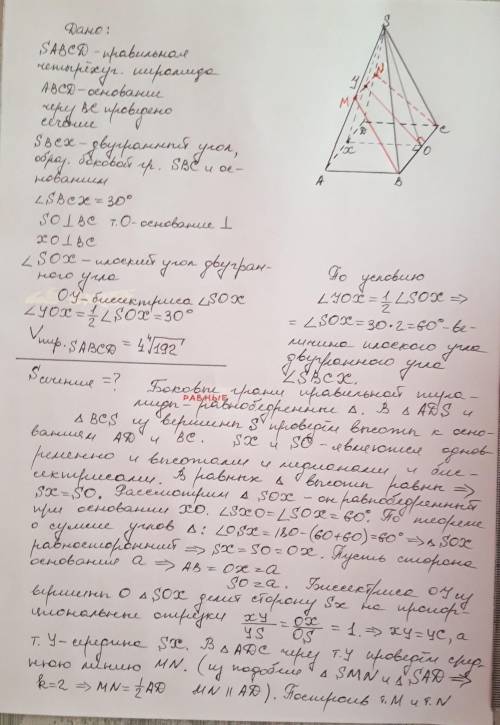 Дано:
SABCD - правильная
четырёхуг. пирамида
ABCD - основание
через BC проведено
сечение
SBCX - двугранный угол,
образ. боковой гр. SBC и ос-
нованием
∠SBCX = 30°
SO⊥BC т.О - основание ⊥
XO⊥BC
∠SOX - плоский угол двугран-
ного угла
OY - биссектриса ∠SOX
∠YOX = 1/2 ∠SOX = 30°
Vпир. SABCD =
S
Y
N
M
D
C
X
O
A
B
По условию
∠YOX = 1/2 ∠SOX ⇒
= ∠SOX = 30·2 = 60° - ве-
личина плоского угла
двугранного угла
∠SBCX.
Sсечения = ? Боковые грани правильной пира-
РАВНЫЕ
миды - равнобедренные Δ. В ΔADS и
ΔBCS из вершины S проведём высоты к осно-
ваниям AD и BC. SX и SO - являются однов-
ременно и высотами и медианами и бис-
сектрисами. В равных Δ высоты равны ⇒
SX = SO. Рассмотрим ΔSOX - он равнобедренный
при основании XO. ∠SXO = ∠SOX = 60°. По теореме
о сумме углов Δ: ∠OSX = 180 - (60+60) = 60° ⇒ ΔSOX
равносторонний ⇒ SX = SO = OX. Пусть сторона
основания a ⇒ AB = OX = a
SO = a. Биссектриса OY из
вершины O ΔSOX делит сторону Sx на пропор-
циональные отрезки XY/YS = OX/OS = 1. ⇒ XY = YC, а
т. Y - середина SX. В ΔADC через т. Y проведём сред-
нюю линию MN. (из подобия ΔSMN и ΔSAD ⇒
k = 2 ⇒ MN = 1/2 AD MN ∥ AD). Построив т. M и т. N